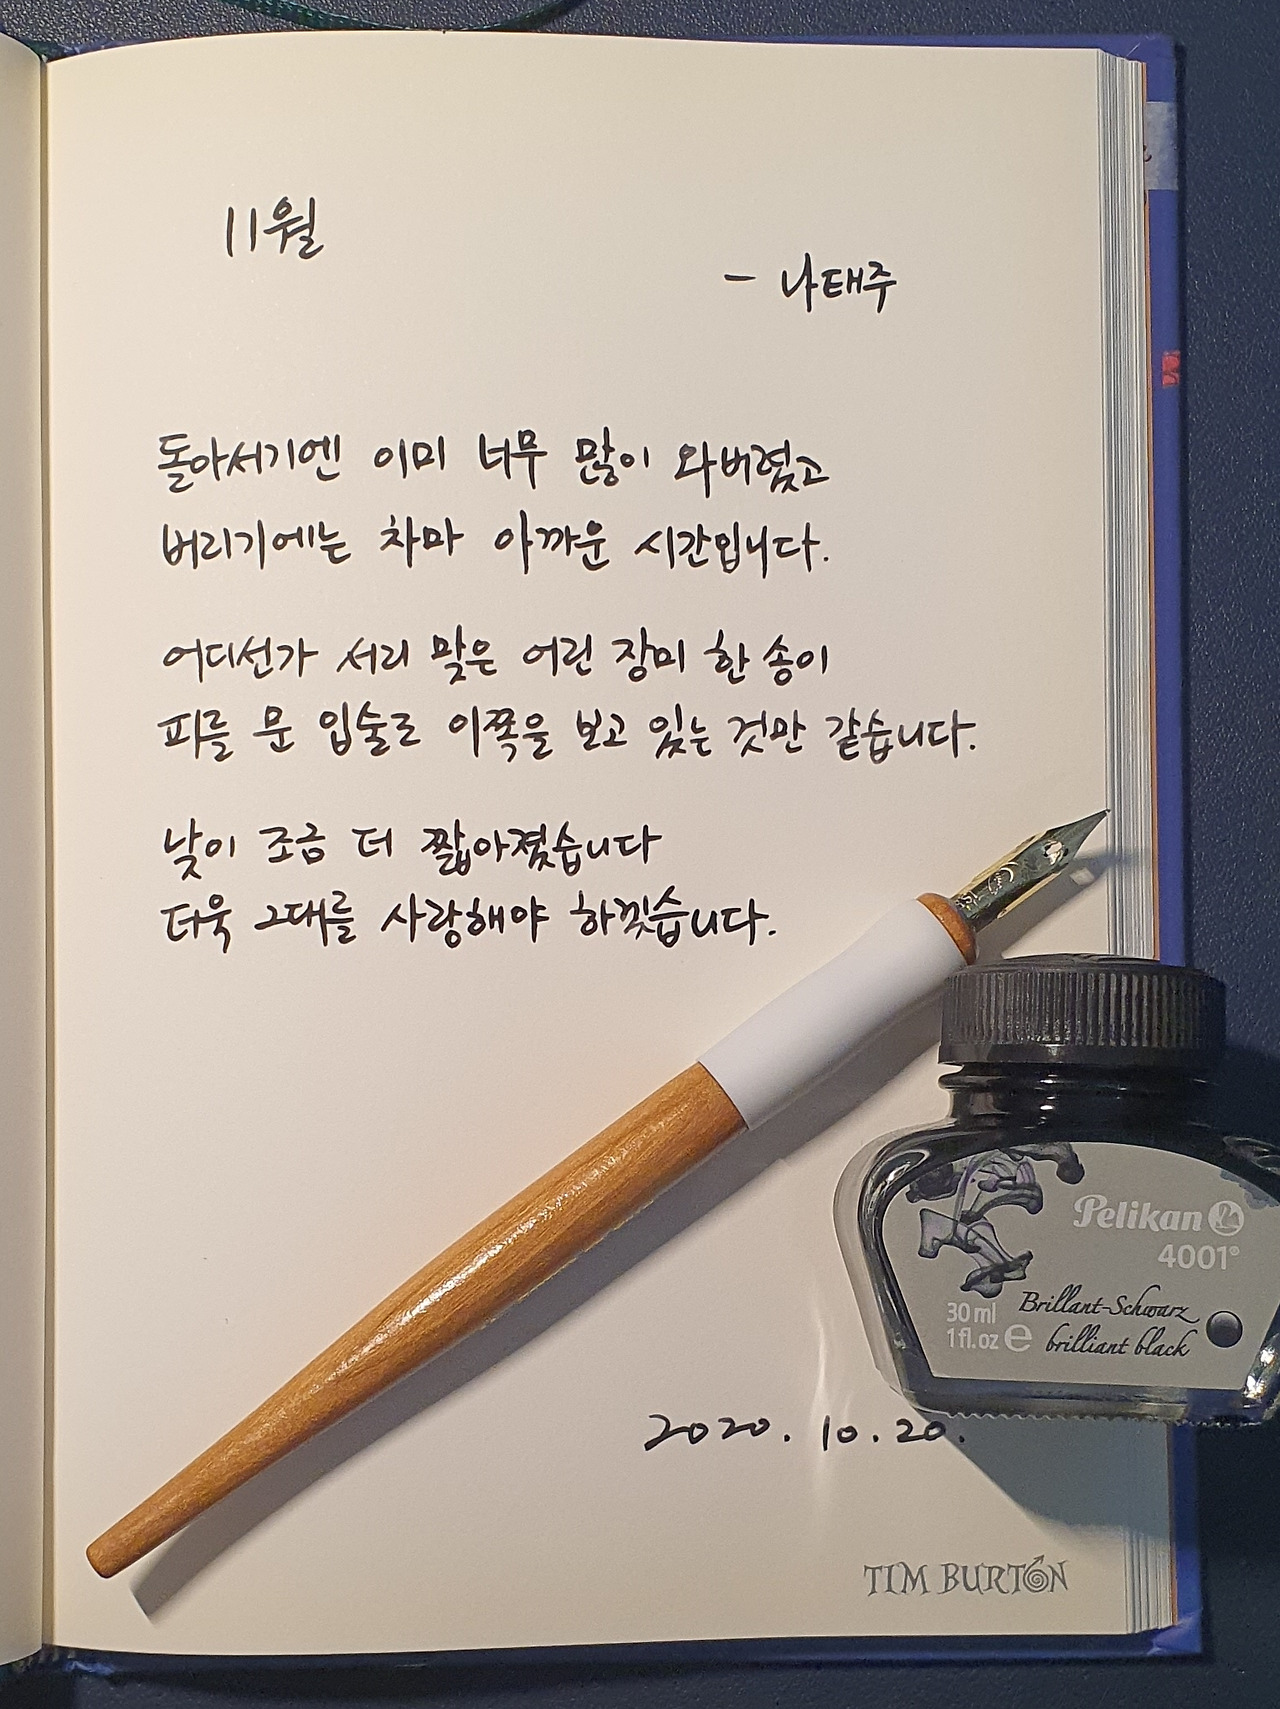 11월
- 나태주
돌아서기엔 이미 너무 많이 와버렸고
버리기에는 차마 아까운 시간입니다.
어디선가 서리 맞은 어린 장미 한 송이
피를 문 입술로 이쪽을 보고 있는 것만 같습니다.
낮이 조금 더 짧아졌습니다
더욱 그대를 사랑해야 하겠습니다.
Pelikan
4001®
30 ml
1 fl. oz e
Brillant-Schwarz
brilliant black
2020. 10. 20.
TIM BURTON